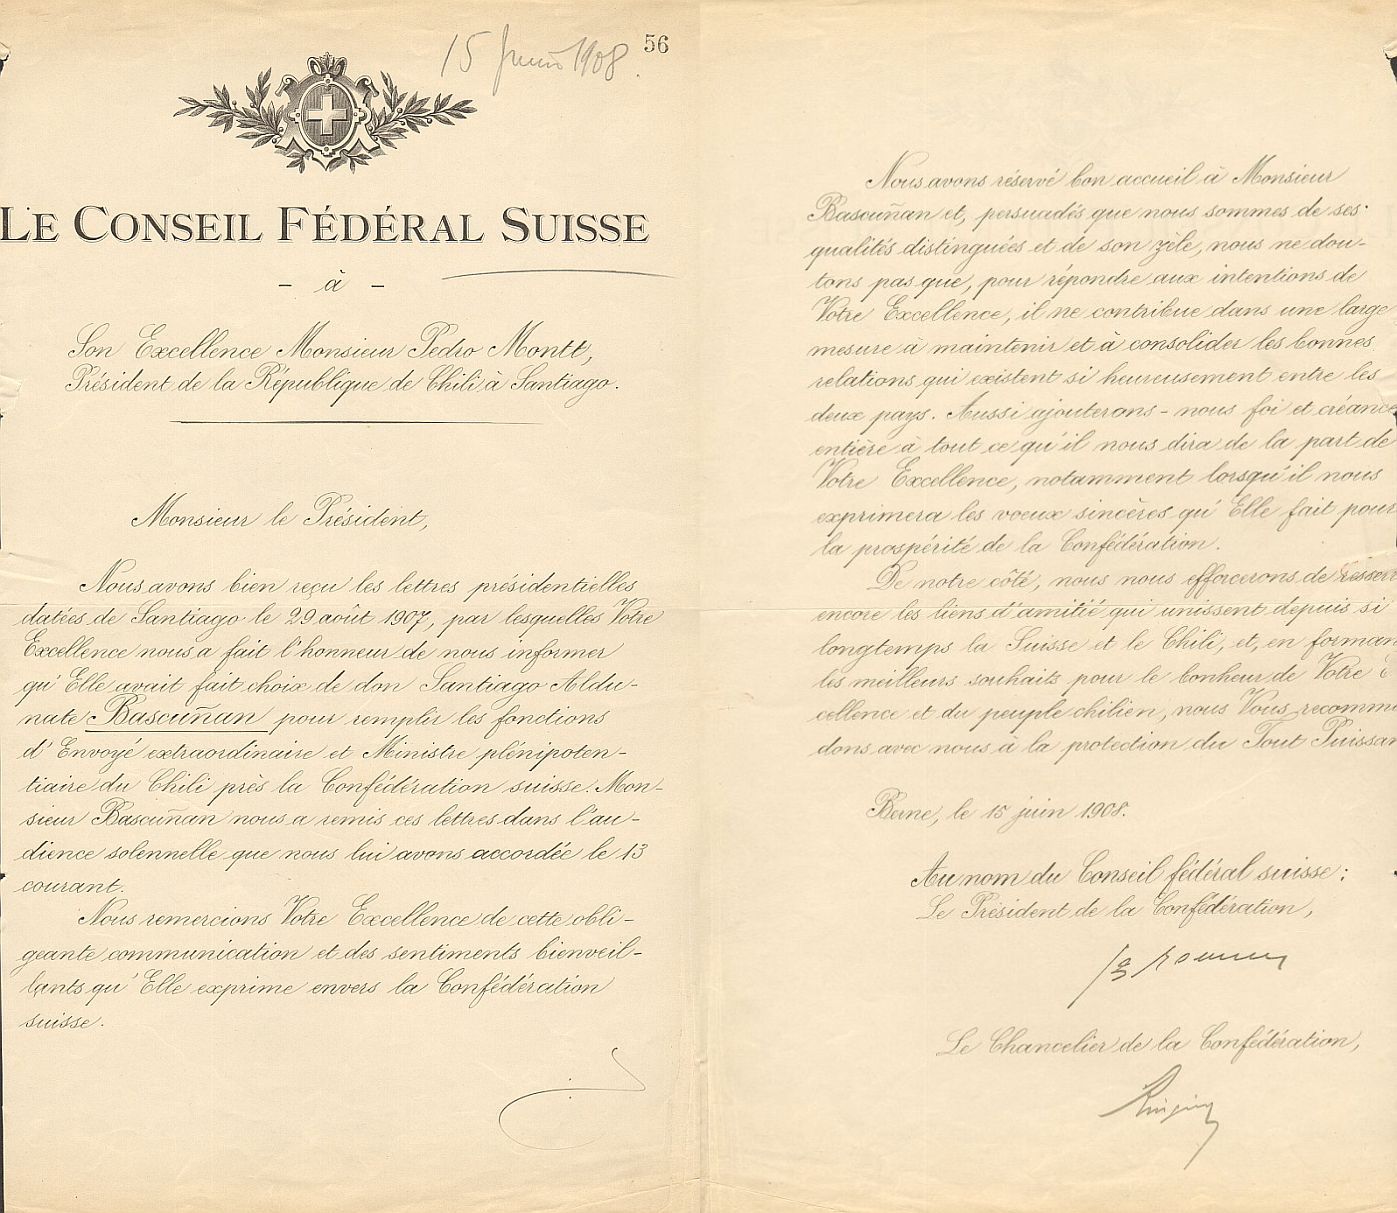 15 Junio 1908.
56
LE CONSEIL FÉDÉRAL SUISSE
- à -
Son Excellence Monsieur Pedro Montt,
Président de la République de Chili à Santiago.
Monsieur le Président,
Nous avons bien reçu les lettres présidentielles
datées de Santiago le 29 août 1907, par lesquelles Votre
Excellence nous a fait l'honneur de nous informer
qu'Elle avait fait choix de don Santiago Aldu-
nate Bascuñan pour remplir les fonctions
d'Envoyé extraordinaire et Ministre plénipoten-
tiaire du Chili près la Confédération suisse. Mon-
sieur Bascuñan nous a remis ces lettres dans l'au-
dience solennelle que nous lui avons accordée le 13
courant.
Nous remercions Votre Excellence de cette obli-
geante communication et des sentiments bienveil-
lants qu'Elle exprime envers la Confédération
suisse.
Nous avons réservé bon accueil à Monsieur
Bascuñan et, persuadés que nous sommes de ses
qualités distinguées et de son zèle, nous ne dou-
tons pas que, pour répondre aux intentions de
Votre Excellence, il ne contribue dans une large
mesure à maintenir et à consolider les bonnes
relations qui existent si heureusement entre les
deux pays. Aussi ajouterons-nous foi et créance
entière à tout ce qu'il nous dira de la part de
Votre Excellence, notamment lorsqu'il nous
exprimera les voeux sincères qu'Elle fait pour
la prospérité de la Confédération.
De notre côté, nous nous efforcerons de resserr
encore les liens d'amitié qui unissent depuis si
longtemps la Suisse et le Chili, et, en forman
les meilleurs souhaits pour le bonheur de Votre E
cellence et du peuple chilien, nous Vous recomm
dons avec nous à la protection du Tout Puissan
Berne, le 15 juin 1908.
Au nom du Conseil fédéral suisse:
Le Président de la Confédération,
Le Chancelier de la Confédération,
Ringier